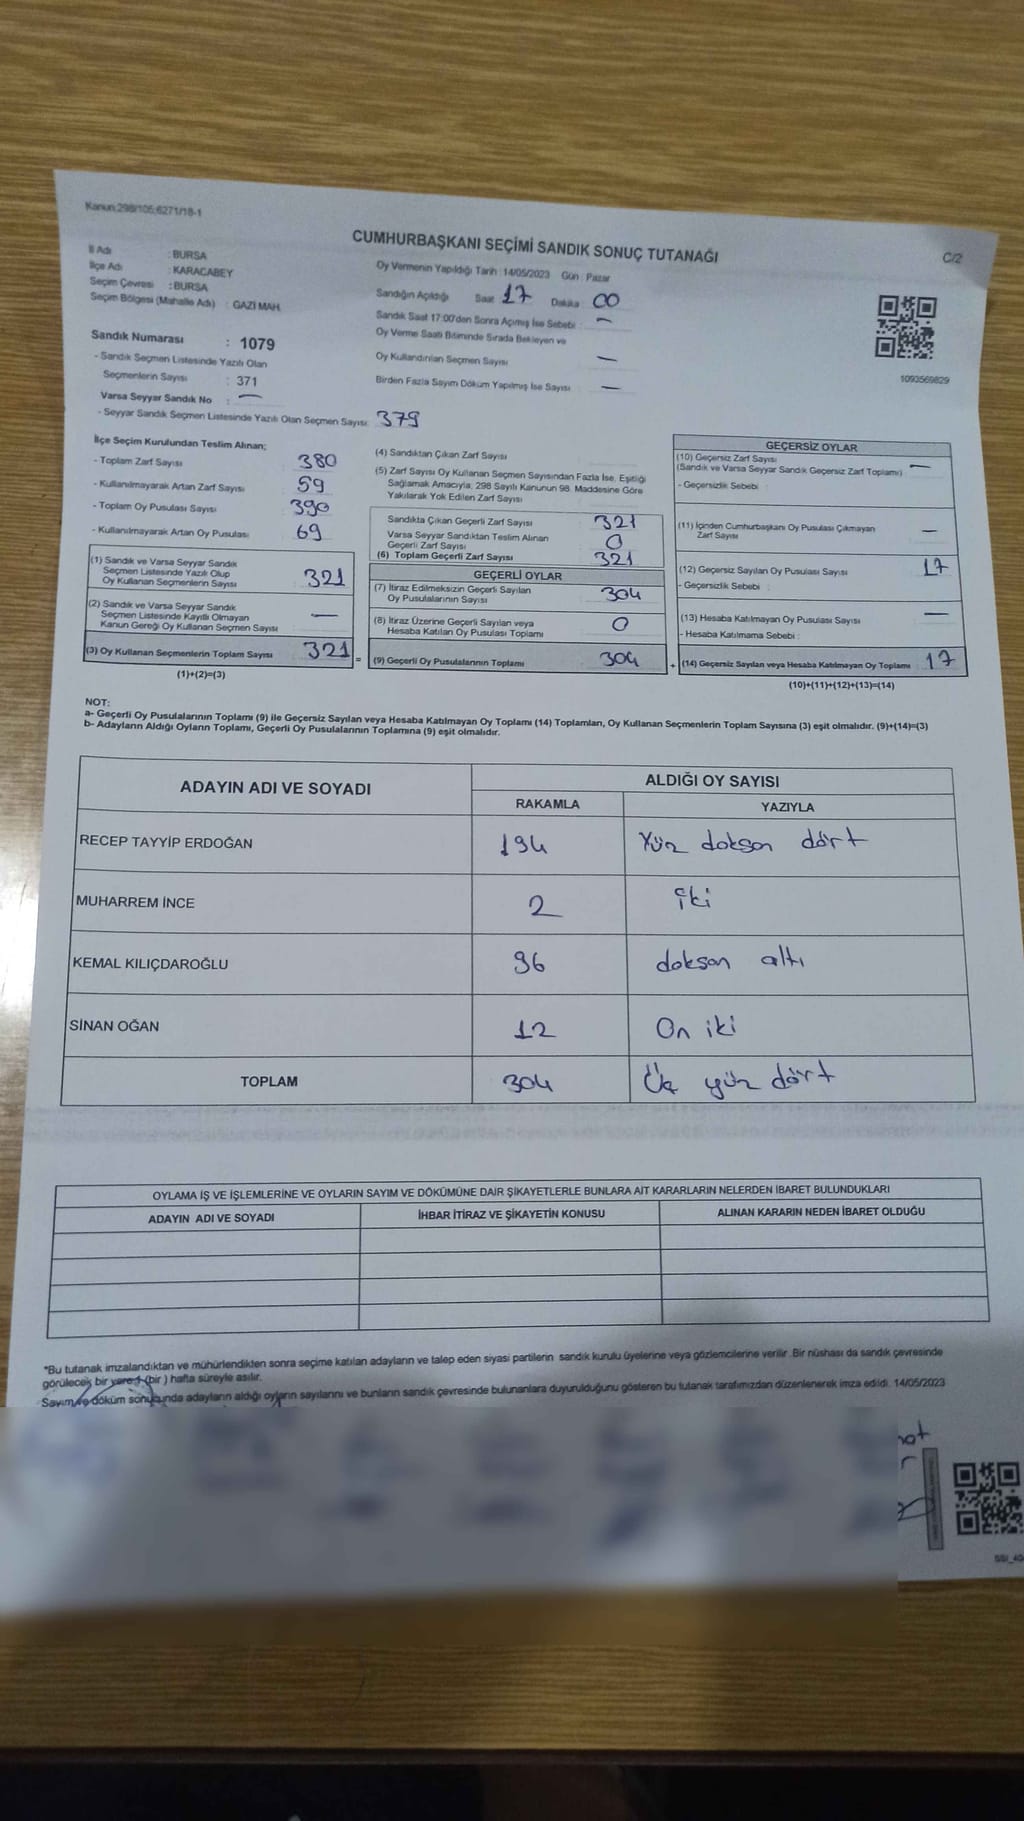 Kanun:298/105;6271/18-1
CUMHURBAŞKANI SEÇİMİ SANDIK SONUÇ TUTANAĞI
C/2
İl Adı : BURSA
İlçe Adı : KARACABEY
Seçim Çevresi : BURSA
Seçim Bölgesi (Mahalle Adı) : GAZİ MAH.
Sandık Numarası : 1079
- Sandık Seçmen Listesinde Yazılı Olan
Seçmenlerin Sayısı : 371
Varsa Seyyar Sandık No : —
- Seyyar Sandık Seçmen Listesinde Yazılı Olan Seçmen Sayısı: 379
Oy Vermenin Yapıldığı Tarih : 14/05/2023 Gün : Pazar
Sandığın Açıldığı Saat 17 Dakika : 00
Sandık Saat 17:00'den Sonra Açımış İse Sebebi : —
Oy Verme Saati Bitiminde Sırada Bekleyen ve
Oy Kullandırılan Seçmen Sayısı —
Birden Fazla Sayım Döküm Yapılmış İse Sayısı : —
1093569829
İlçe Seçim Kurulundan Teslim Alınan;
- Toplam Zarf Sayısı 380
- Kullanılmayarak Artan Zarf Sayısı : 59
- Toplam Oy Pusulası Sayısı 390
- Kullanılmayarak Artan Oy Pusulası 69
(1) Sandık ve Varsa Seyyar Sandık
Seçmen Listesinde Yazılı Olup
Oy Kullanan Seçmenlerin Sayısı 321
(2) Sandık ve Varsa Seyyar Sandık
Seçmen Listesinde Kayıtlı Olmayan
Kanun Gereği Oy Kullanan Seçmen Sayısı —
(3) Oy Kullanan Seçmenlerin Toplam Sayısı 321 =
(1)+(2)=(3)
(4) Sandıktan Çıkan Zarf Sayısı
(5) Zarf Sayısı Oy Kullanan Seçmen Sayısından Fazla İse, Eşitliği
Sağlamak Amacıyla, 298 Sayılı Kanunun 98. Maddesine Göre
Yakılarak Yok Edilen Zarf Sayısı
Sandıkta Çıkan Geçerli Zarf Sayısı 321
Varsa Seyyar Sandıktan Teslim Alınan
Geçerli Zarf Sayısı 0
(6) Toplam Geçerli Zarf Sayısı 321
GEÇERLİ OYLAR
(7) İtiraz Edilmeksizin Geçerli Sayılan
Oy Pusulalarının Sayısı 304
(8) İtiraz Üzerine Geçerli Sayılan veya
Hesaba Katılan Oy Pusulası Toplamı 0
(9) Geçerli Oy Pusulalarının Toplamı 304 +
GEÇERSİZ OYLAR
(10) Geçersiz Zarf Sayısı
(Sandık ve Varsa Seyyar Sandık Geçersiz Zarf Toplamı) —
- Geçersizlik Sebebi :
(11) İçinden Cumhurbaşkanı Oy Pusulası Çıkmayan
Zarf Sayısı —
(12) Geçersiz Sayılan Oy Pusulası Sayısı 17
- Geçersizlik Sebebi :
(13) Hesaba Katılmayan Oy Pusulası Sayısı —
- Hesaba Katılmama Sebebi :
(14) Geçersiz Sayılan veya Hesaba Katılmayan Oy Toplamı 17
(10)+(11)+(12)+(13)=(14)
NOT:
a- Geçerli Oy Pusulalarının Toplamı (9) ile Geçersiz Sayılan veya Hesaba Katılmayan Oy Toplamı (14) Toplamları, Oy Kullanan Seçmenlerin Toplam Sayısına (3) eşit olmalıdır. (9)+(14)=(3)
b- Adayların Aldığı Oyların Toplamı, Geçerli Oy Pusulalarının Toplamına (9) eşit olmalıdır.
ADAYIN ADI VE SOYADI ALDIĞI OY SAYISI
RAKAMLA YAZIYLA
RECEP TAYYİP ERDOĞAN 194 Yüz doksan dört
MUHARREM İNCE 2 iki
KEMAL KILIÇDAROĞLU 96 doksan altı
SİNAN OĞAN 12 On iki
TOPLAM 304 Üç yüz dört
OYLAMA İŞ VE İŞLEMLERİNE VE OYLARIN SAYIM VE DÖKÜMÜNE DAİR ŞİKAYETLERLE BUNLARA AİT KARARLARIN NELERDEN İBARET BULUNDUKLARI
ADAYIN ADI VE SOYADI İHBAR İTİRAZ VE ŞİKAYETİN KONUSU ALINAN KARARIN NEDEN İBARET OLDUĞU
*Bu tutanak imzalandıktan ve mühürlendikten sonra seçime katılan adayların ve talep eden siyasi partilerin sandık kurulu üyelerine veya gözlemcilerine verilir. Bir nüshası da sandık çevresinde
görülecek bir yere 1 (bir ) hafta süreyle asılır.
Sayım ve döküm sonucunda adayların aldığı oyların sayılarını ve bunların sandık çevresinde bulunanlara duyurulduğunu gösteren bu tutanak tarafımızdan düzenlenerek imza edildi. 14/05/2023